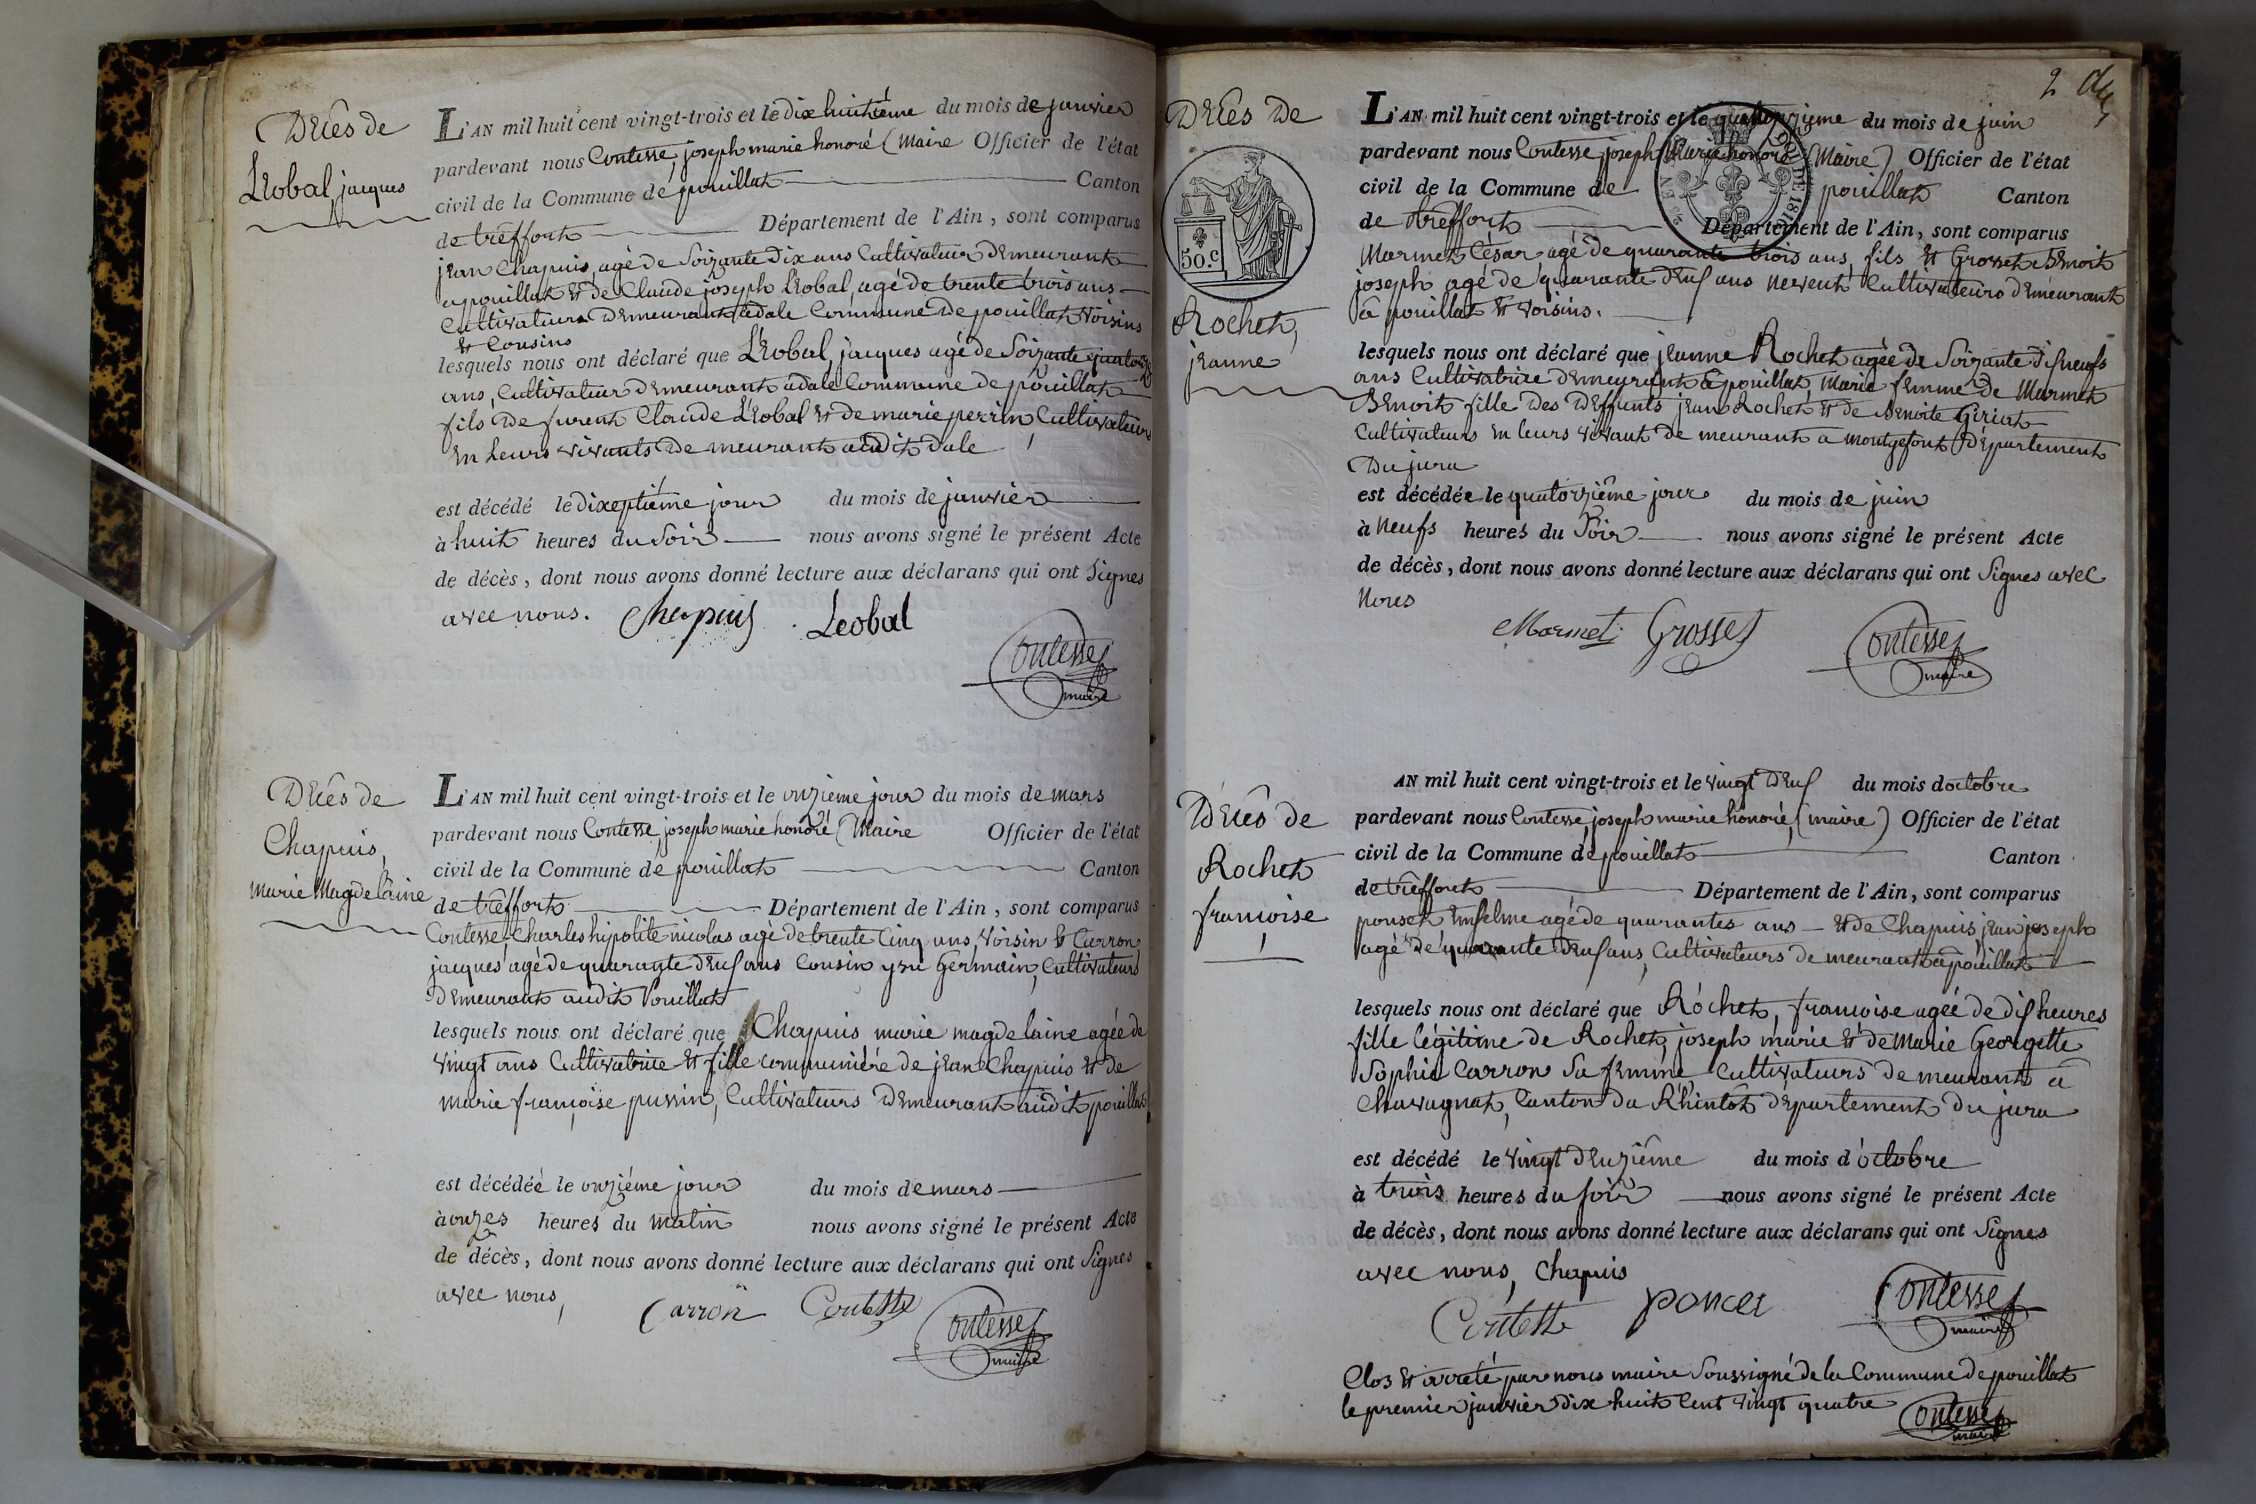 Décès de
Léobal, jacques
L'AN mil huit cent vingt-trois et le dix huitième du mois de janvier
pardevant nous Contesse, joseph marie honoré (Maire Officier de l'état
civil de la Commune de pouillat Canton
de trêffort Département de l'Ain, sont comparus
jean Chapuis, agé de Soixante dix ans Cultivateur demeurant
a pouillat et de Claude joseph Léobal, agé de trente trois ans
Cultivateur demeurant à dale Commune de pouillat voisins
et Cousins
lesquels nous ont déclaré que Léobal, jacques agé de Soixante quatorze
ans, Cultivateur demeurant à dale Commune de pouillat
fils de furent Claude Léobal et de marie perrin Cultivateurs
en leurs vivants demeurant audit dale
est décédé le dixeptième jour du mois de janvier
à huit heures du Soir nous avons signé le présent Acte
de décès, dont nous avons donné lecture aux déclarans qui ont Signes
avec nous. Chapuis Leobal
Contesse
maire
Décès de
Chapuis,
Marie Magdelaine
L'AN mil huit cent vingt-trois et le onzième jour du mois de mars
pardevant nous Contesse, joseph marie honoré (Maire Officier de l'état
civil de la Commune de pouillat Canton
de trêffort Département de l'Ain, sont comparus
Contesse, Charles hipolite nicolas agé de trente Cinq ans, voisin et Carron
jacques agé de quarante deuf ans Cousin Germain, Cultivateurs
demeurant audit Pouillat
lesquels nous ont déclaré que Chapuis marie magdelaine agée de
vingt ans Cultivatrice et fille de jean Chapuis et de
marie françoise, Cultivateurs demeurant audit pouillat
est décédée le onzième jour du mois de mars
à onzes heures du matin nous avons signé le présent Acte
de décès, dont nous avons donné lecture aux déclarans qui ont Signes
avec nous,
Carron Contesse Contesse
maire
2
Décès de
50.c
Rochet,
jeanne
L'AN mil huit cent vingt-trois et le quatorzieme du mois de juin
pardevant nous Contesse joseph Marie honoré (Maire) Officier de l'état
civil de la Commune de pouillat Canton
de trêffort Département de l'Ain, sont comparus
Marmet César, agé de quarante trois ans, fils et Grosset Benoit
joseph agé de quarante deuf ans neveu, Cultivateurs demeurant
à pouillat et voisins.
lesquels nous ont déclaré que jeanne Rochet agée de Soixante disneufs
ans Cultivatrice demeurant à pouillat, Marie femme de Marmet
Benoit fille des deffunts jean Rochet et de Benoite Girint
Cultivateurs en leurs vivant demeurant a montgefont Département
du jura
est décédée le quatorzième jour du mois de juin
à neufs heures du Soir nous avons signé le présent Acte
de décès, dont nous avons donné lecture aux déclarans qui ont Signes avec
nous
Marmet Grosset Contesse
maire
Décès de
Rochet
françoise
AN mil huit cent vingt-trois et le vingt deuf du mois doctobre
pardevant nous Contesse, joseph marie honoré, (maire) Officier de l'état
civil de la Commune de pouillat Canton
de trêffort Département de l'Ain, sont comparus
ponset Enselme agé de quarantes ans et de Chapuis jean joseph
agé de quarante deuf ans, Cultivateurs demeurant à pouillat
lesquels nous ont déclaré que Rochet, françoise agée de dis heures
fille légitime de Rochet, joseph marie et de Marie Georgette
Sophie Carron Sa femme Cultivateurs demeurant à
Chavagnat, Canton Département du jura
est décédé le vingt deuzième du mois d'octobre
à trois heures du soir nous avons signé le présent Acte
de décès, dont nous avons donné lecture aux déclarans qui ont Signes
avec nous, Chapuis
Contesse poncet Contesse
maire
Clos et arreté par nous maire Soussigné de la Commune de pouillat
le premier janvier dix huit Cent vingt quatre Contesse
maire